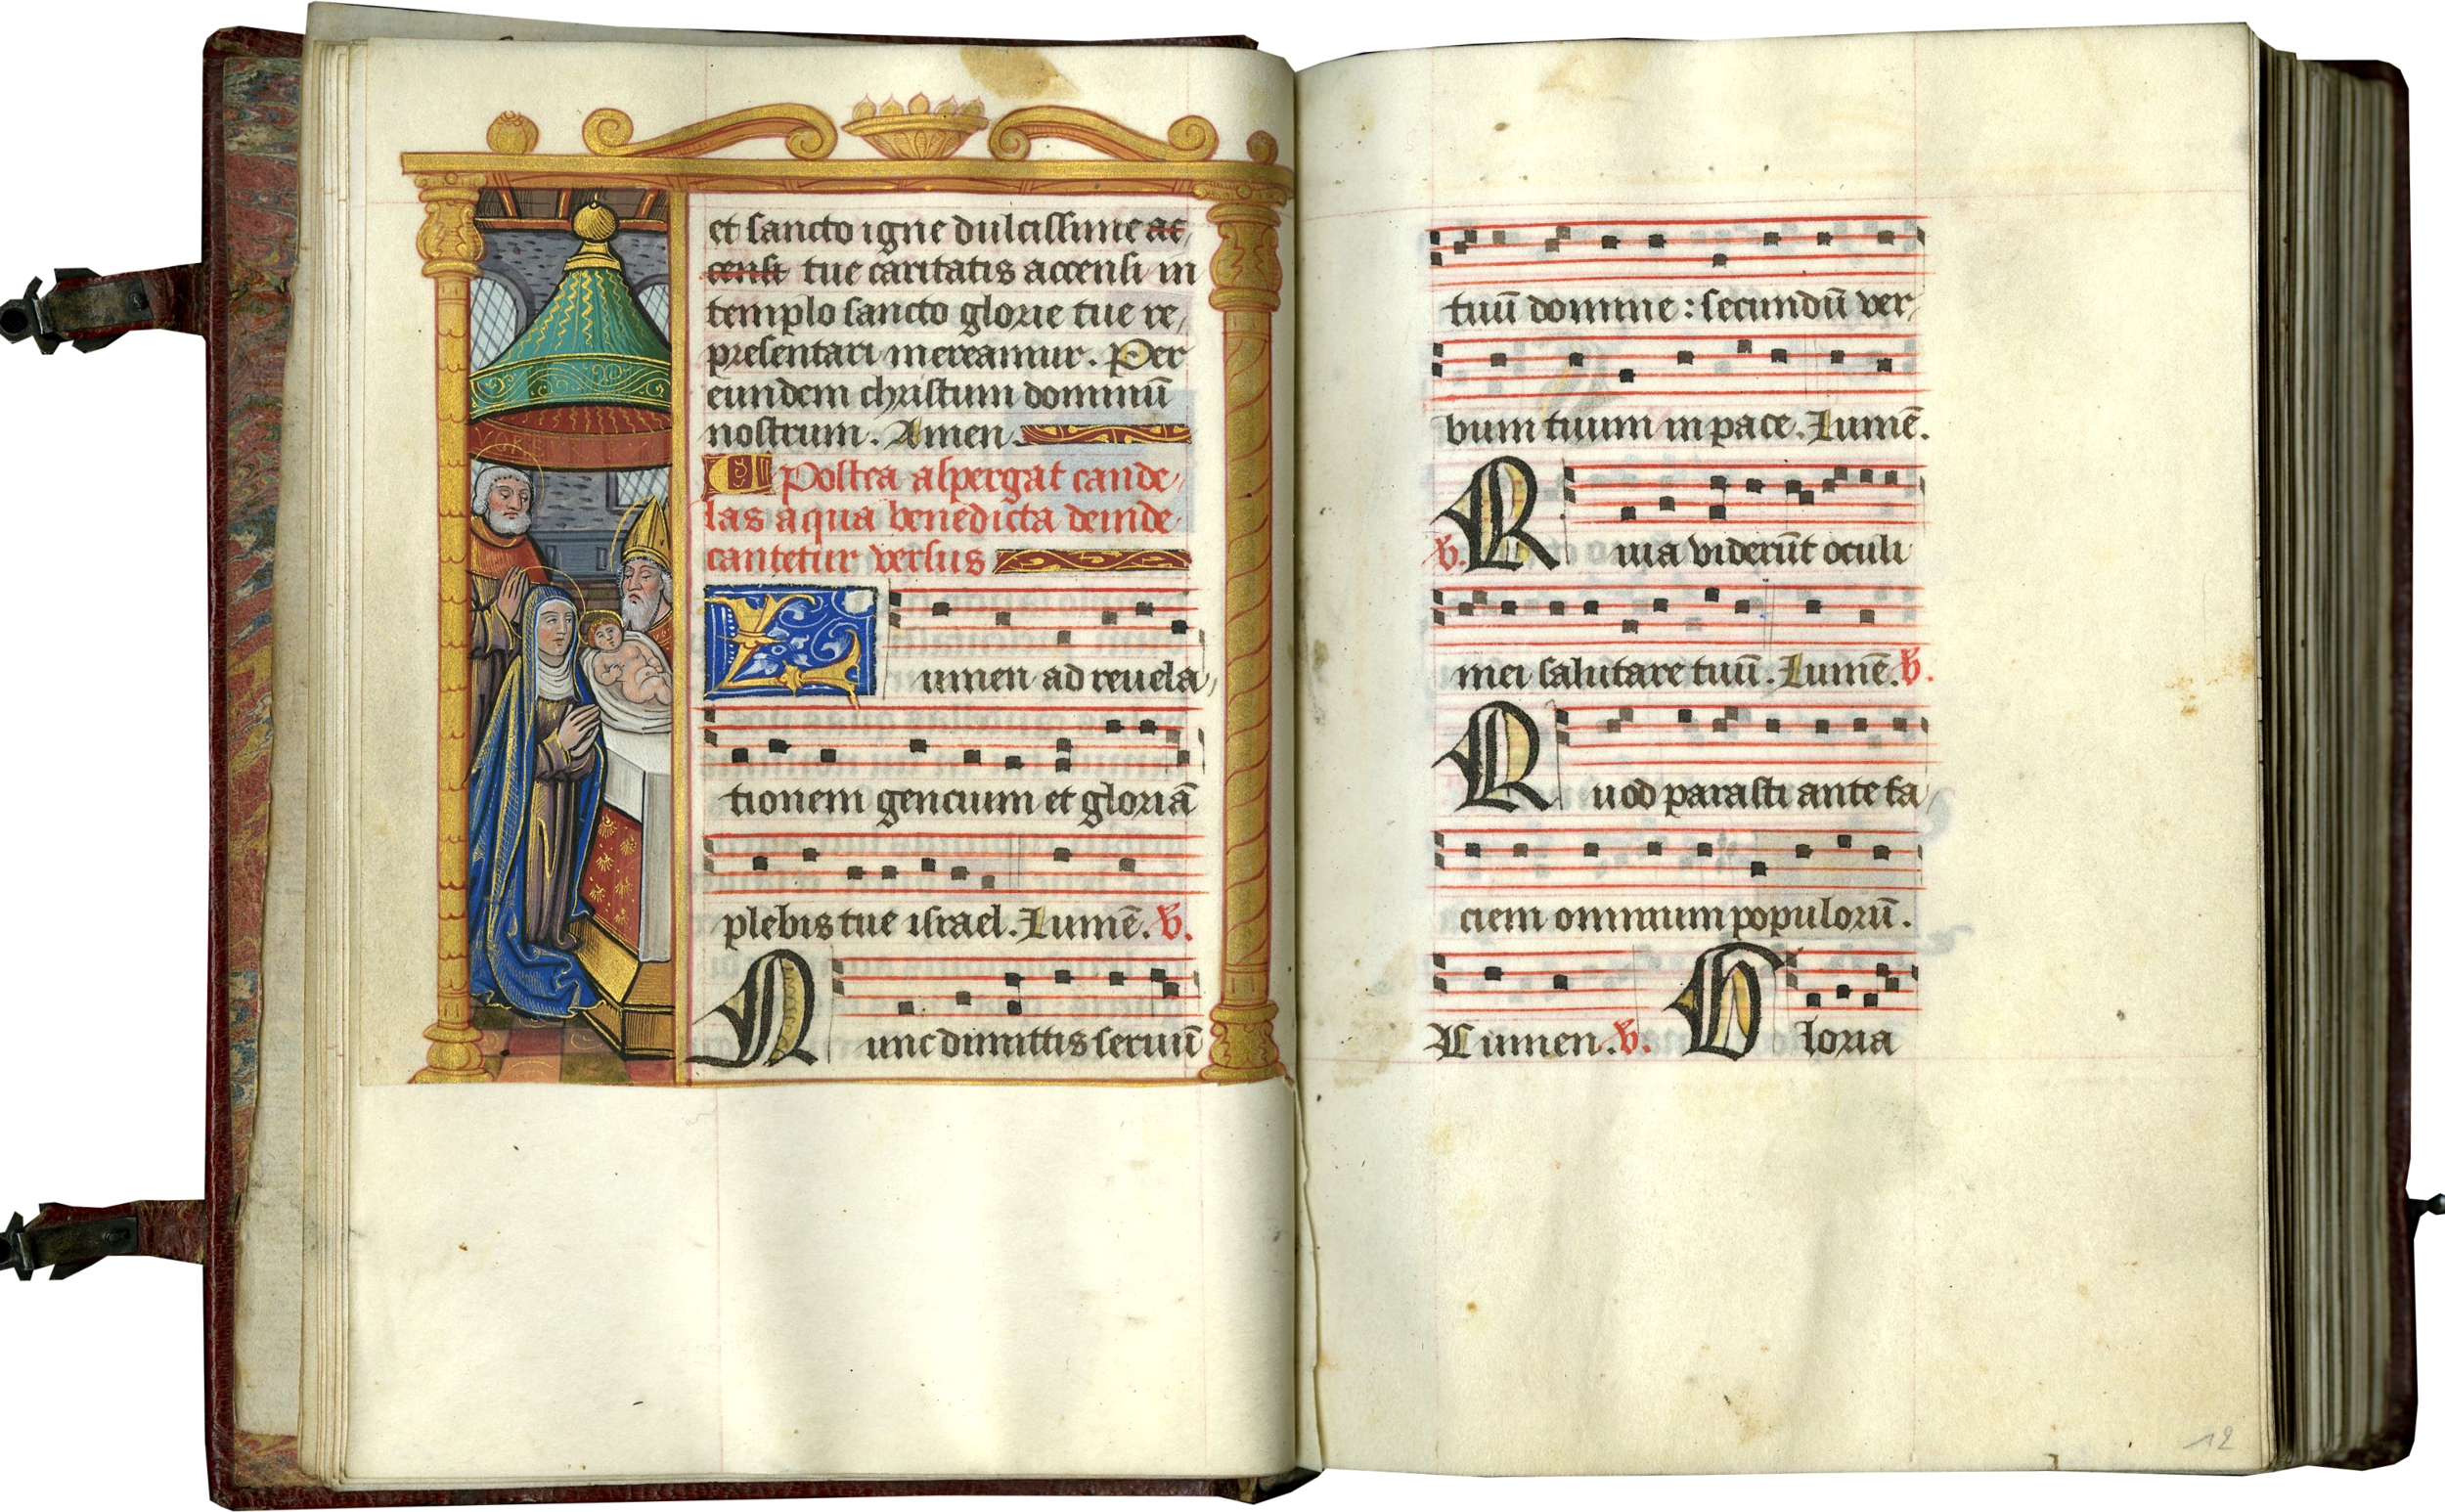 et sancto igne dulcissime ac,
censi tue caritatis accensi in
templo sancto glorie tue re,
presentari mereamur. Per
eundem christum dominū
nostrum. Amen.
Postea aspergat cande,
las aqua benedicta deinde
cantetur versus
Lumen ad reuela,
tionem gencium et gloriā
plebis tue israel. Lumē. V.
Nunc dimittis seruū
tuū domine: secundū ver,
bum tuum in pace. Lumē.
V. Quia viderūt oculi
mei salutare tuū. Lumē. V.
Quod parasti ante fa,
ciem omnium populorū.
Lumen. V. Gloria
12